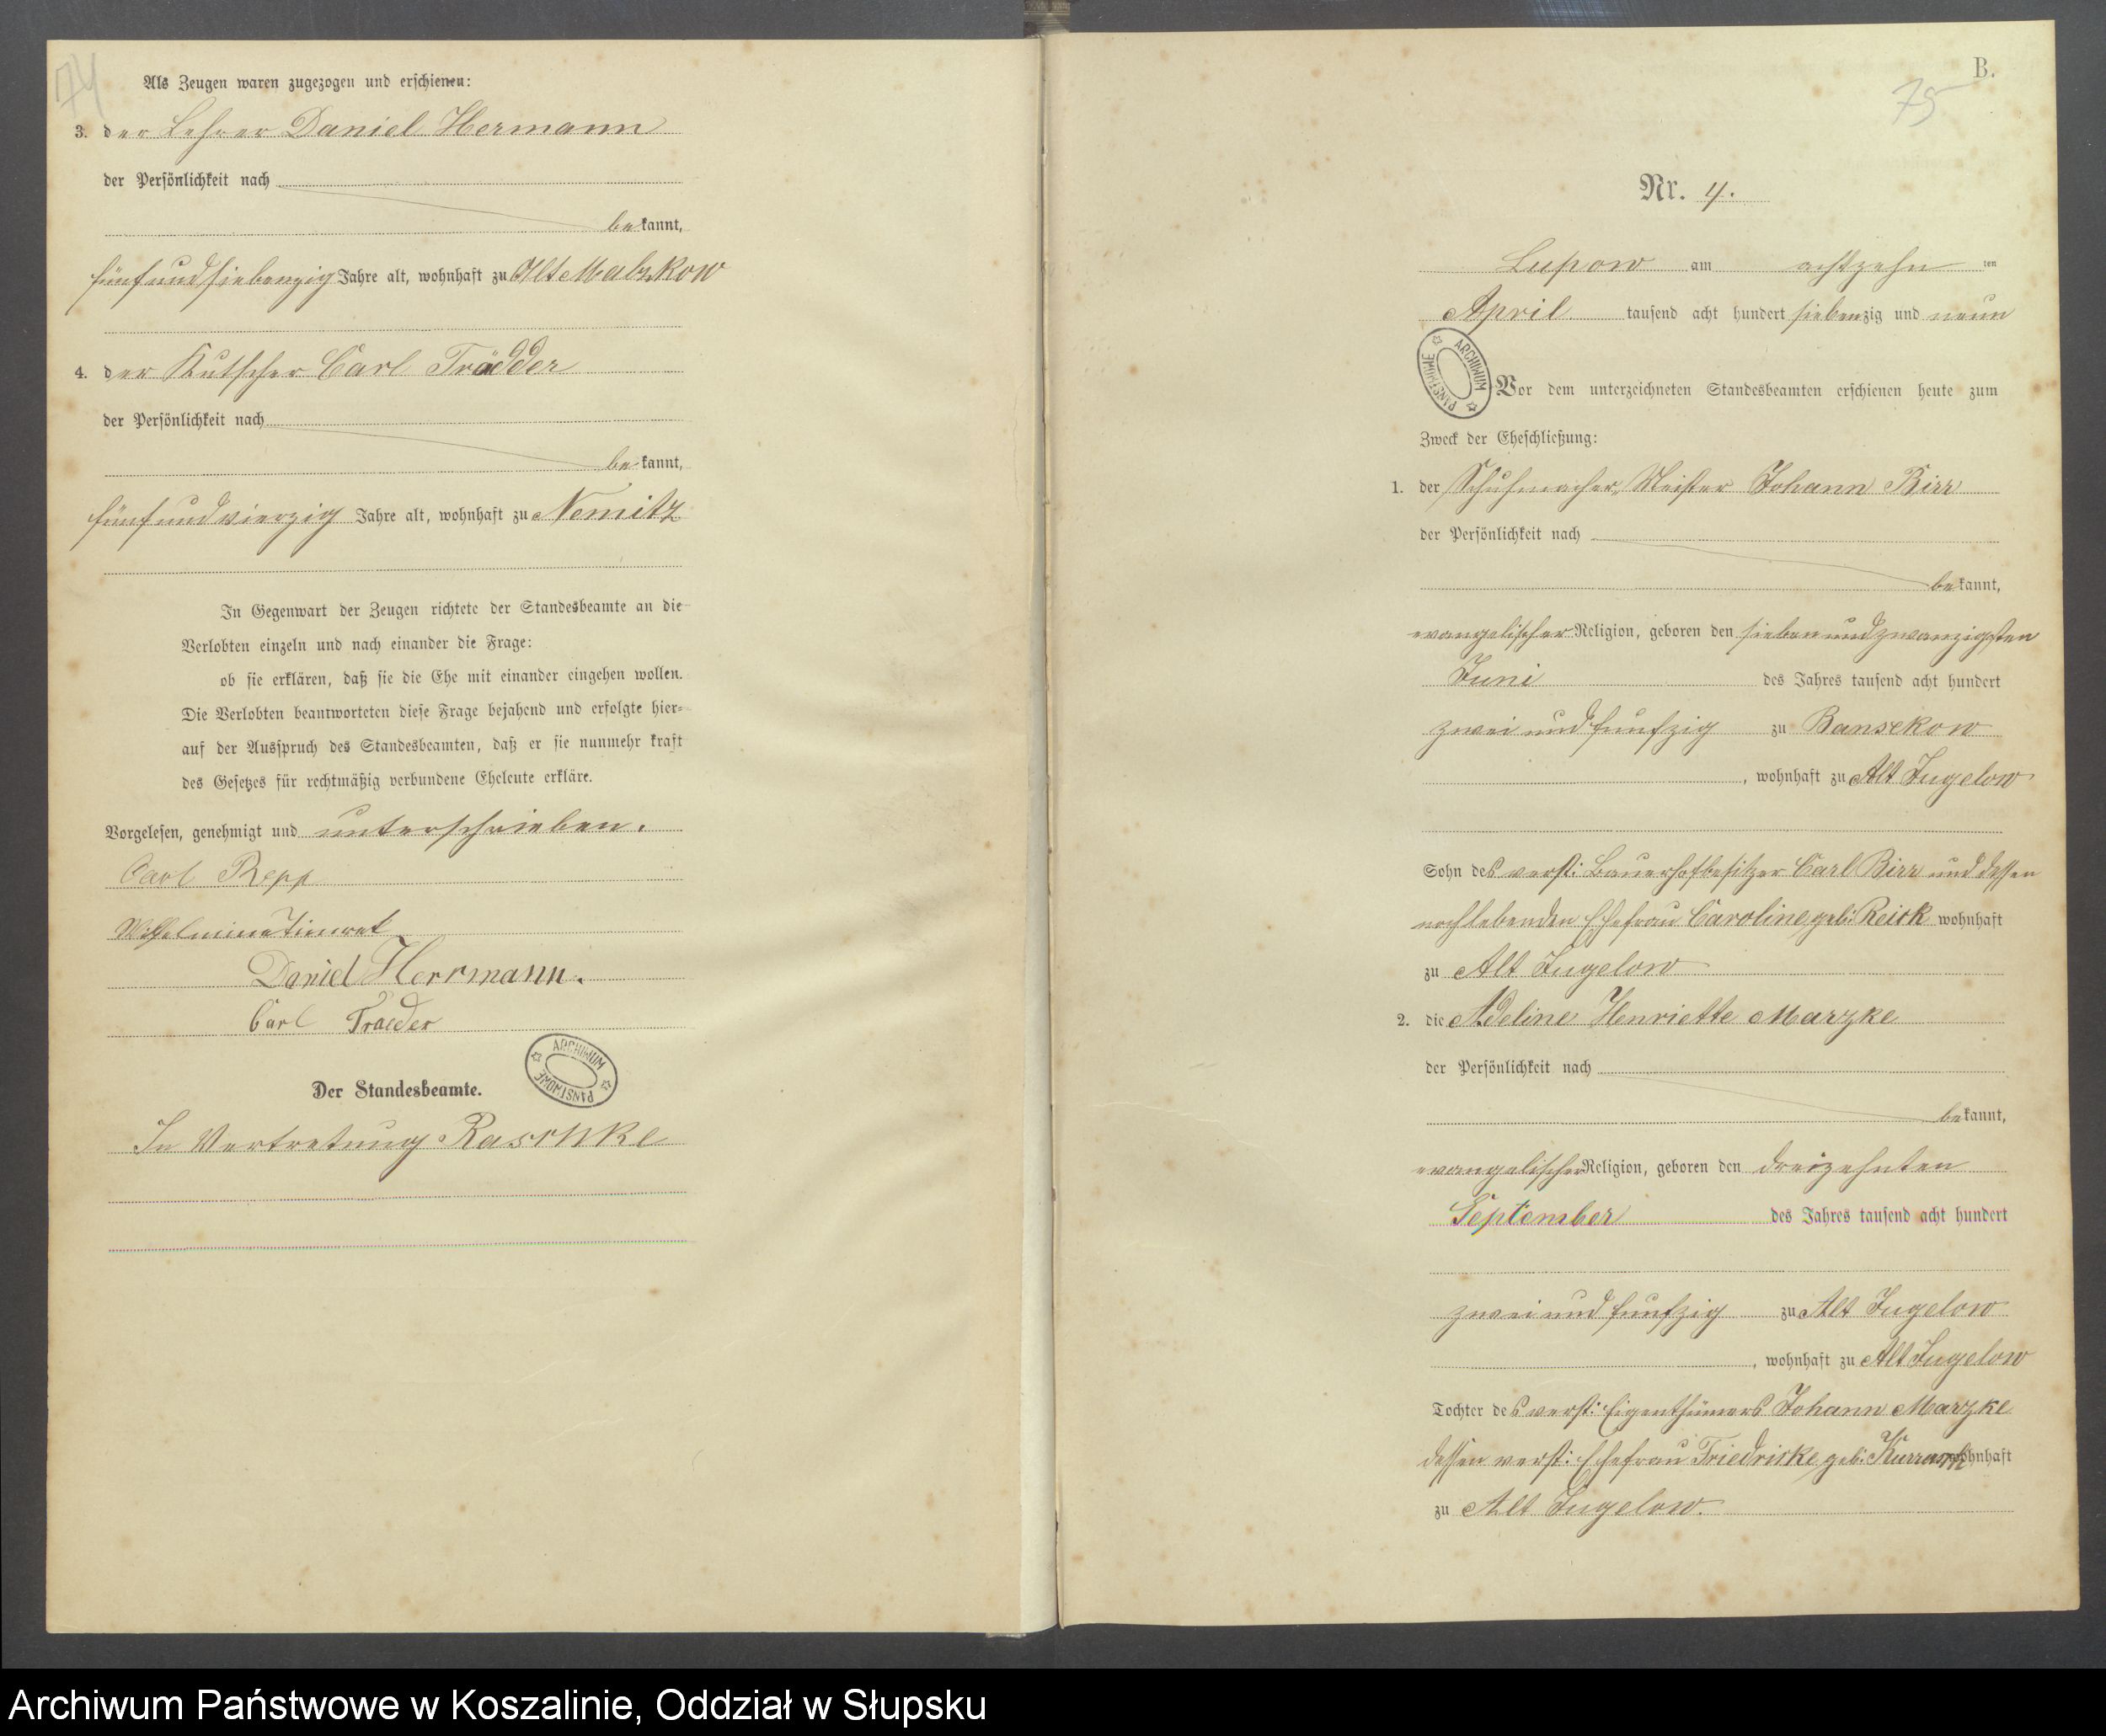 74
Als Zeugen waren zugezogen und erschienen:
3. der Lehrer Daniel Hermann
der Persönlichkeit nach
bekannt,
fünfundsiebenzig Jahre alt, wohnhaft zu Alt Malzkow
4. der Kutscher Carl Trädder
der Persönlichkeit nach
bekannt,
fünfundvierzig Jahre alt, wohnhaft zu Nemitz
In Gegenwart der Zeugen richtete der Standesbeamte an die
Verlobten einzeln und nach einander die Frage:
ob sie erklären, daß sie die Ehe mit einander eingehen wollen.
Die Verlobten beantworteten diese Frage bejahend und erfolgte hier-
auf der Ausspruch des Standesbeamten, daß er sie nunmehr kraft
des Gesetzes für rechtmäßig verbundene Eheleute erkläre.
Vorgelesen, genehmigt und unterschrieben.
Carl Repp
Wilhelmine
Daniel Herrmann.
Carl Traeder
ARCHIWUM PAŃSTWOWE
Der Standesbeamte.
In Vertretung Raschke
B.
75
Nr. 4.
Lupow am achtzehn ten
April tausend acht hundert siebenzig und neun
ARCHIWUM PAŃSTWOWE
Vor dem unterzeichneten Standesbeamten erschienen heute zum
Zweck der Eheschließung:
1. der Schuhmacher-Meister Johann Birr
der Persönlichkeit nach
bekannt,
evangelischer Religion, geboren den siebenundzwanzigsten
Juni des Jahres tausend acht hundert
zwei und funfzig zu Bansekow
, wohnhaft zu Alt Jugelow
Sohn des verst: Bauerhofbesitzer Carl Birr und dessen
noch lebenden Ehefrau Caroline geb: Reick wohnhaft
zu Alt Jugelow
2. die Adeline Henriette Marzke
der Persönlichkeit nach
bekannt,
evangelischer Religion, geboren den dreizehnten
September des Jahres tausend acht hundert
zwei und funfzig zu Alt Jugelow
, wohnhaft zu Alt Jugelow
Tochter des verst: Eigenthümers Johann Marzke
dessen verst: Ehefrau Friedricke geb: wohnhaft
zu Alt Jugelow.
Archiwum Państwowe w Koszalinie, Oddział w Słupsku